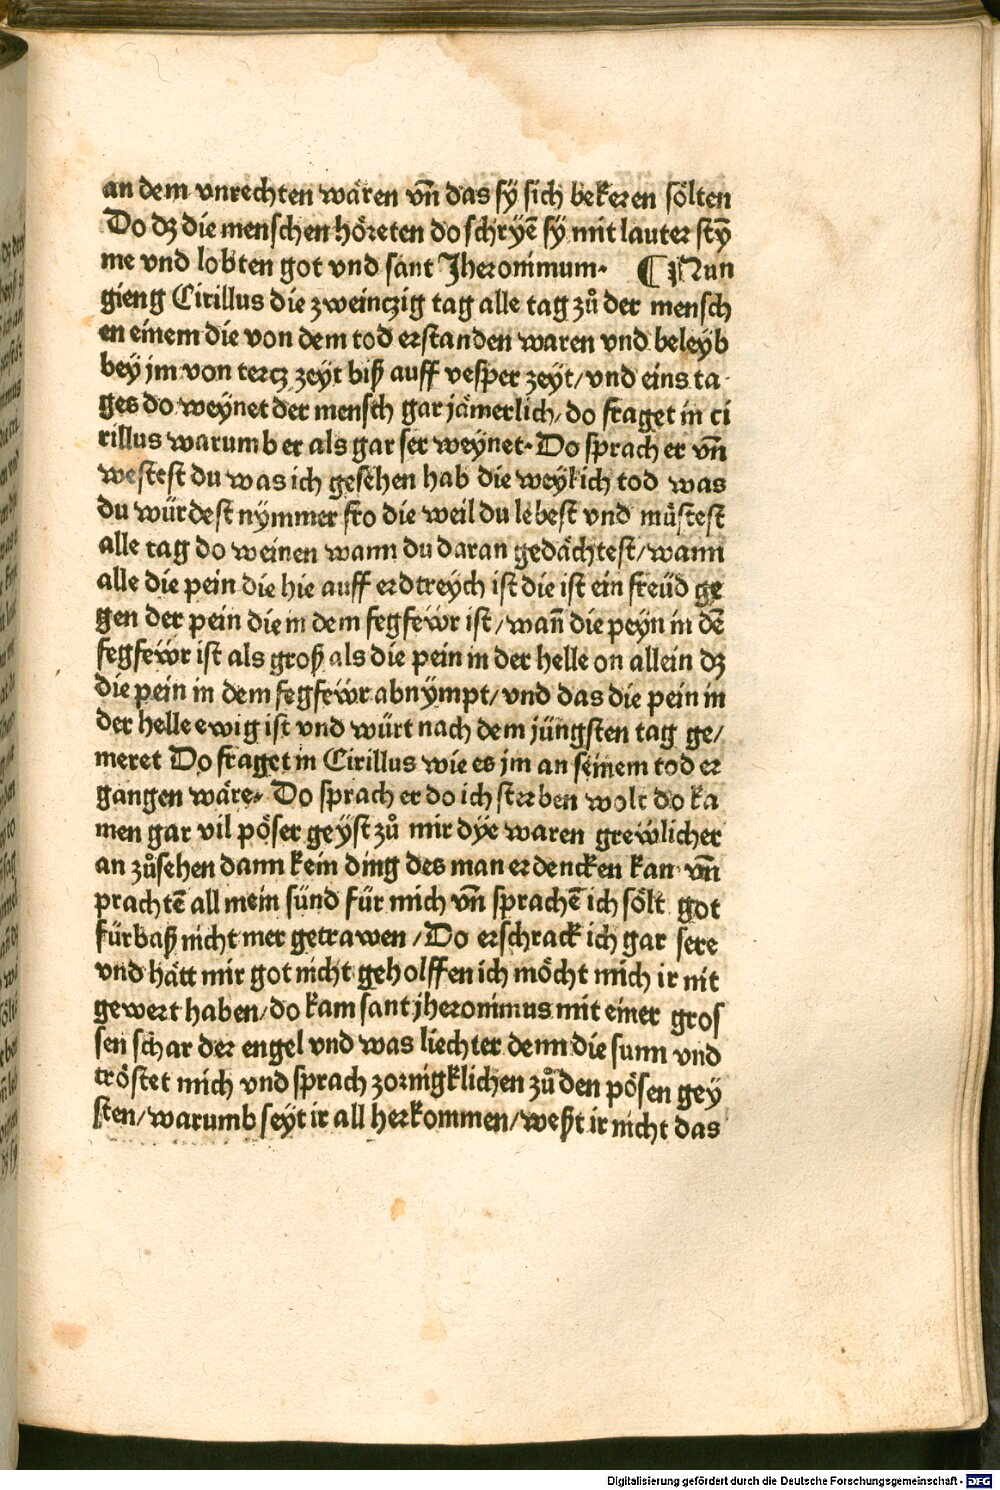 an dem vnrechten wären vn̄ das sÿ sich bekeren sölten
Do dz die menschen höreten do schryē sy mit lauter stȳ
me vnd lobten got vnd sant Jheronimum· ¶ Nun
gieng Cirillus die zweinczig tag alle tag zů der mensch
en einem die von dem tod erstanden waren vnd beleyb
bey jm von tercz zeyt biß auff vesper zeyt/vnd eins ta
ges do weynet der mensch gar jämerlich/do fraget in ci
rillus warumb er als gar ser weynet· Do sprach er vn̄
westest du was ich gesehen hab die weyl ich tod was
du würdest nymmer fro die weil du lebest vnd müstest
alle tag do weinen wann du daran gedächtest/wann
alle die pein die hie auff erdtreych ist die ist ein freüd ge
gen der pein die in dem fegfewr ist/wan̄ die peyn in dē
fegfewr ist als groß als die pein in der helle on allein dz
die pein in dem fegfewr abnympt/vnd das die pein in
der helle ewig ist vnd würt nach dem jüngsten tag ge/
meret Do fraget in Cirillus wie es jm an seinem tod er
gangen wäre· Do sprach er do ich sterben wolt do ka
men gar vil pöser geyst zů mir dye waren grewlicher
an zůsehen dann kein ding des man erdencken kan vn̄
prachtē all mein sünd für mich vn̄ sprachē ich sölt got
fürbaß nicht mer getrawen/Do erschrack ich gar sere
vnd hätt mir got nicht geholffen ich möcht mich ir nit
gewert haben/do kam sant jheronimus mit einer gros
sen schar der engel vnd was liechter denn die sunn vnd
tröstet mich vnd sprach zornigklichen zů den pösen gey
sten/warumb seyt ir all herkommen/weßt ir nicht das
Digitalisierung gefördert durch die Deutsche Forschungsgemeinschaft - DFG